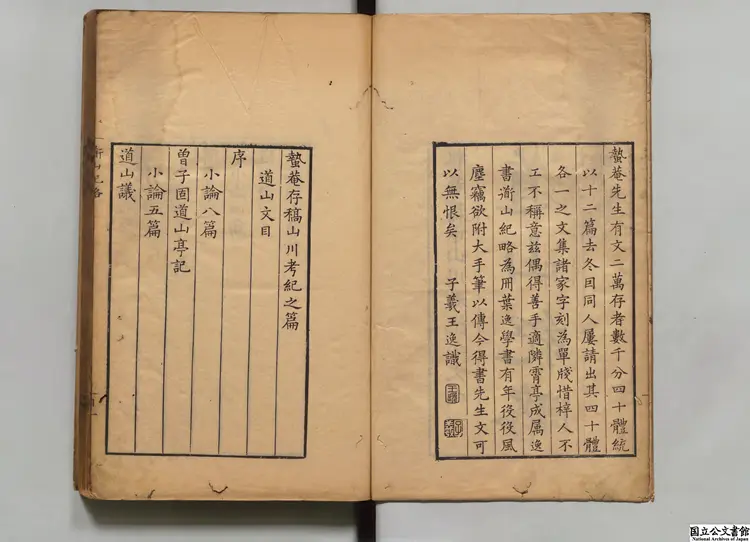 蟄菴先生有文二萬存者數千分四十體統
以十二篇去冬因同人屢請出其四十體
各一之文集諸家字刻為單牋惜梓人不
工不稱意茲偶得善手適隣霄亭成属逸
書道山紀略為冊葉逸學書有年役後風
塵竊欲附大手筆以傳今得書先生文可
以無恨矣 子義王逸識
蟄菴存稿山川考紀之篇
道山文目
序
小論八篇
曾子固道山亭記
小論五篇
道山議
国立公文書館
National Archives of Japan